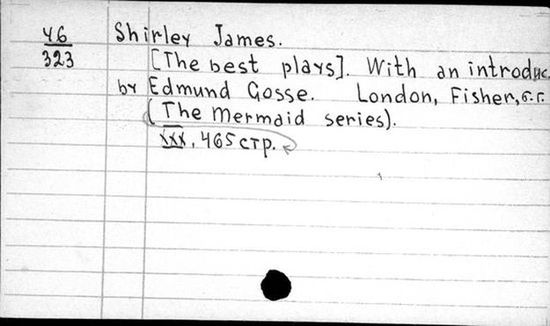 46 Shirley James.
323 [The best plays]. With an introduc
by Edmund Gosse. London, Fisher, б.г.
(The Mermaid series).
xxx, 465 стр.